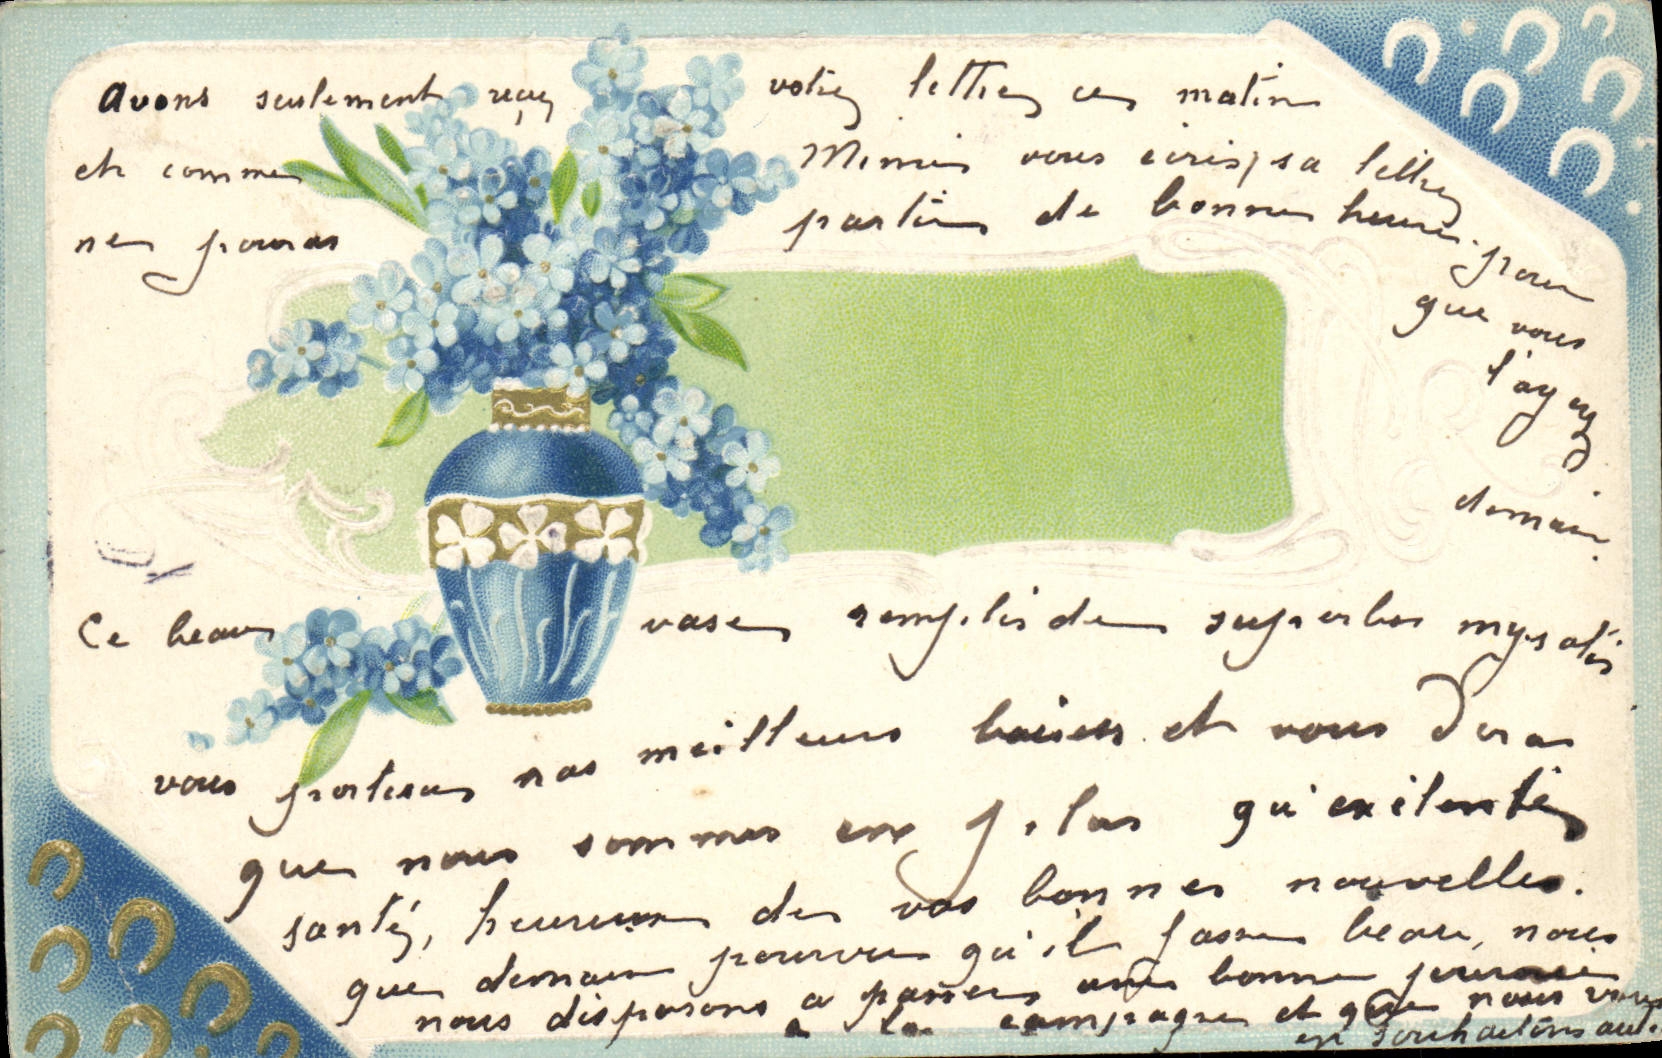 Avons seulement reçu votre lettre ce matin
et comme Mimie vous écris, sa lettre
ne pouras partir de bonne heure pour
que vous
l'ayez
demain.
Ce beau vase remplis de superbes mysotis
vous porteras nos meilleurs baisers et vous diras
que nous sommes en plus qu'exelente
santé, heureux de vos bonnes nouvelles.
que demain pourvu qu'il fasse beau, nous
nous disposons a passer une bonne journée
a la campagne et que nous vous
en souhaitons aut.